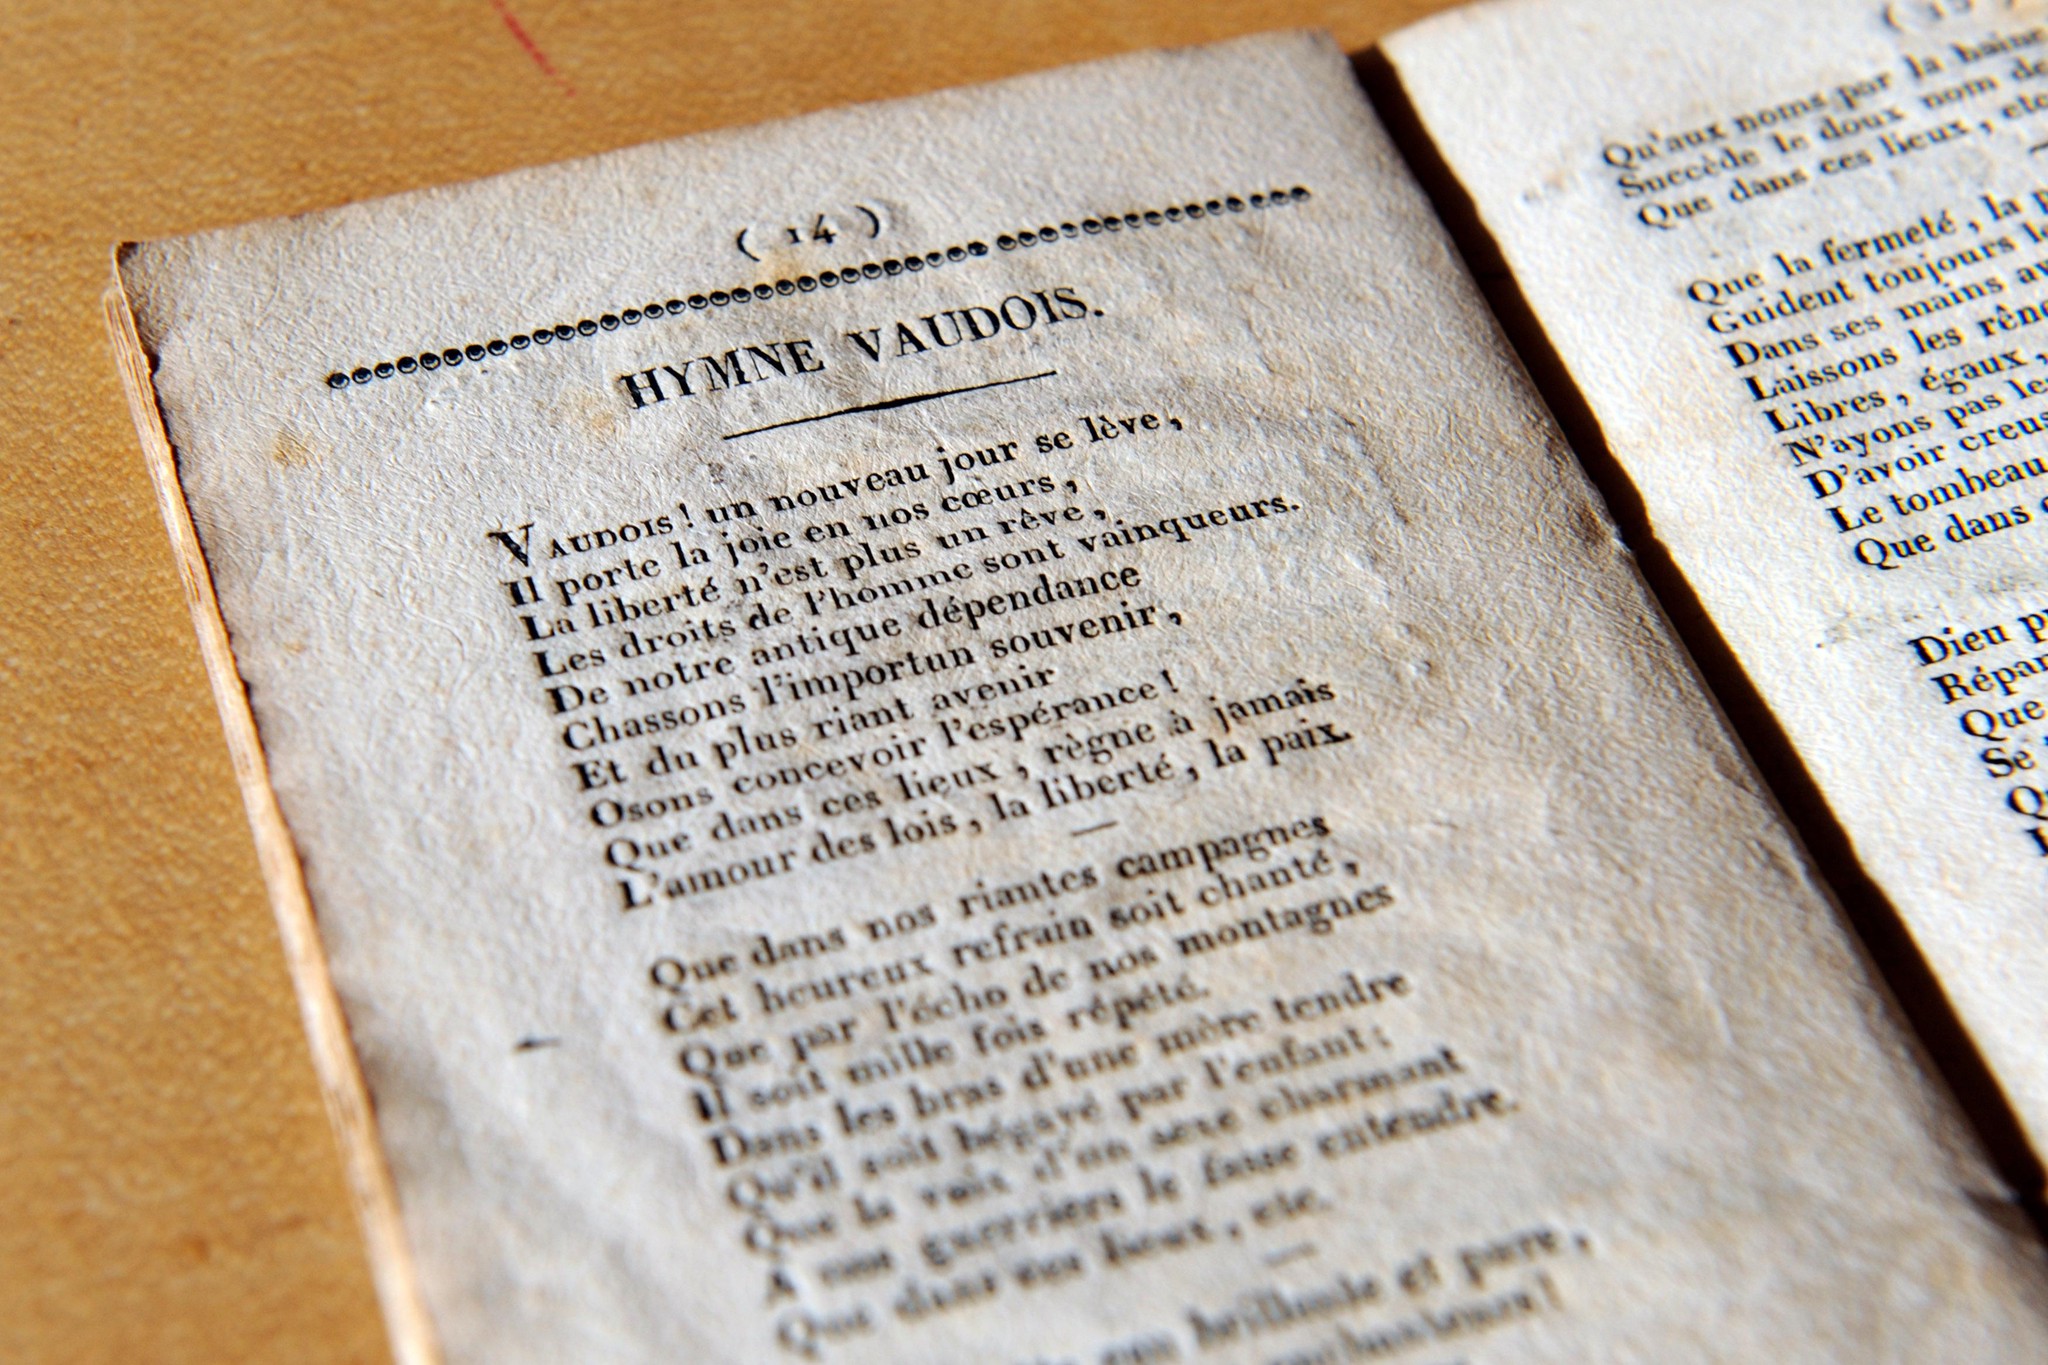 ( 14 )
HYMNE VAUDOIS.
VAUDOIS ! un nouveau jour se lève ,
Il porte la joie en nos cœurs ,
La liberté n'est plus un rêve ,
Les droits de l'homme sont vainqueurs.
De notre antique dépendance
Chassons l'importun souvenir ,
Et du plus riant avenir
Osons concevoir l'espérance !
Que dans ces lieux , règne à jamais
L'amour des lois , la liberté , la paix.
Que dans nos riantes campagnes
Cet heureux refrain soit chanté ,
Que par l'écho de nos montagnes
Il soit mille fois répété.
Dans les bras d'une mère tendre
Qu'il soit bégayé par l'enfant :
Que la voix d'un sexe charmant
A nos guerriers le fasse entendre.
Que dans ces lieux , etc.
brillante et pure ,
( 15 )
Qu'aux noms par la haine
Succède le doux nom de
Que dans ces lieux , etc
Que la fermeté , la
Guident toujours
Dans ses mains
Laissons les
Libres , égaux ,
N'ayons pas
D'avoir
Le tombeau
Que dans
Dieu
Que
Se